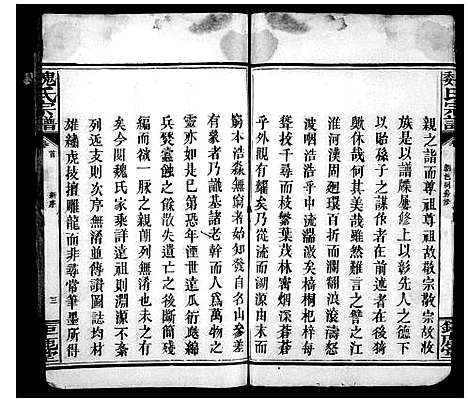 親之譜而尊祖尊祖故敬宗敬宗故收
族是以譜牒屢修上以彰先人之德下
以貽孫子之謀作者在前述者在後猗
歟休哉何其美哉雖然難言之譬之江
淮河漢周廻環百折而瀾翻浪滾濤
波咽浩浩乎中流激矣椅桐杞梓每
聳拔千尋而枝繁葉茂林密烟深蒼蒼
然觀光有耀矣乃從流而溯源由末而
窮本浩森無窮者自名山參差
有象者乃識基諸老幹而人爲萬物之
靈亦如是已第恐年湮世遠瓜衍
兵燹蠹蝕之餘散失遺亡之後斷簡殘
編而欲一脈之親朗列無淆也未之有
矣今閱魏氏家乘詳遠祖則淵源不紊
列近支則次序無淆並傳讚圖誌均材
雄繡虎技擅雕龍而非尋常筆墨所得
魏氏宗譜
首
新序
三
鉅鹿堂
魏氏宗譜
鉅鹿堂